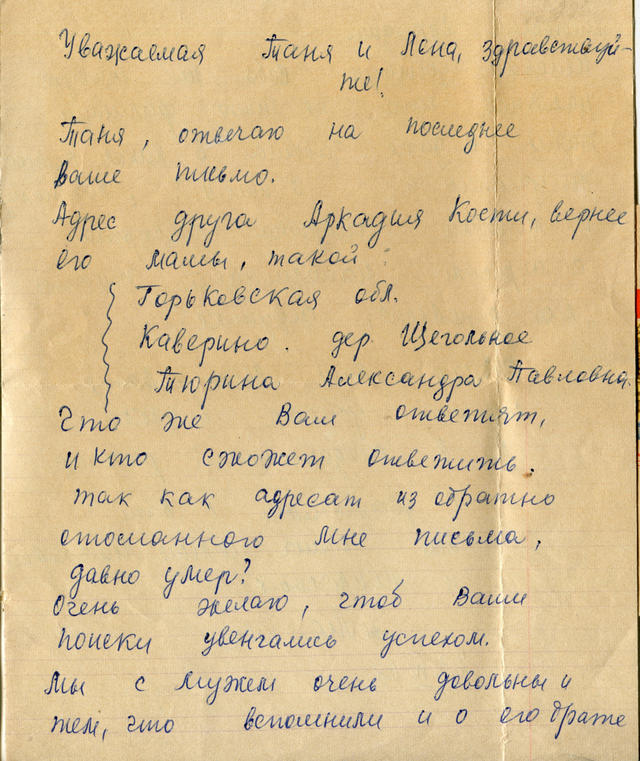 Уважаемая Таня и Лена, здравствуй-
те!
Таня, отвечаю на последнее
Ваше письмо.
Адрес друга Аркадия Кости, вернее
его мамы, такой:
Горьковская обл.
Каверино. дер. Щегольное
Тюрина Александра Павловна.
Что же Вам ответят,
и кто сможет ответить.
так как адресат из обратно
отосланного мне письма,
давно умер?
Очень желаю, чтоб Ваши
поиски увенчались успехом.
Мы с мужем очень довольны и
тем, что вспомнили и о его брате